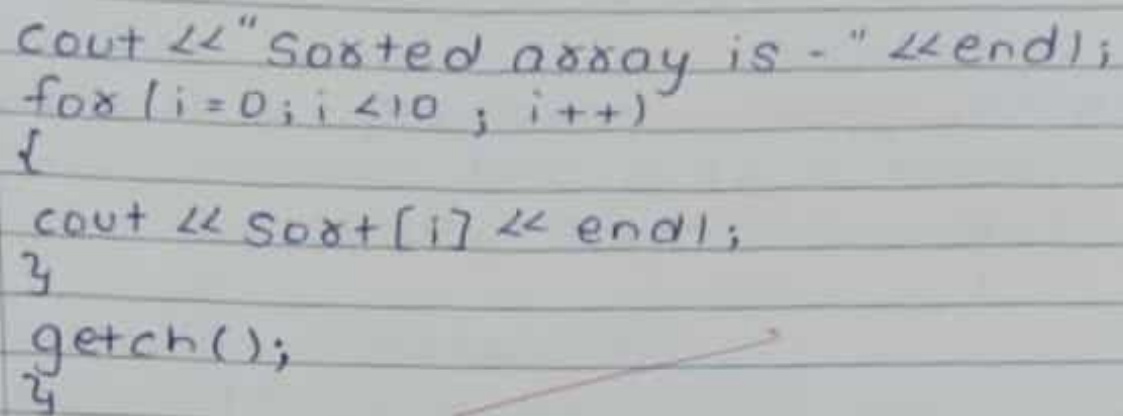 cout <<"Sorted array is - " <<endl;
for (i=0; i <10 ; i++)
{
cout << Sort[i] << endl;
}
getch();
}